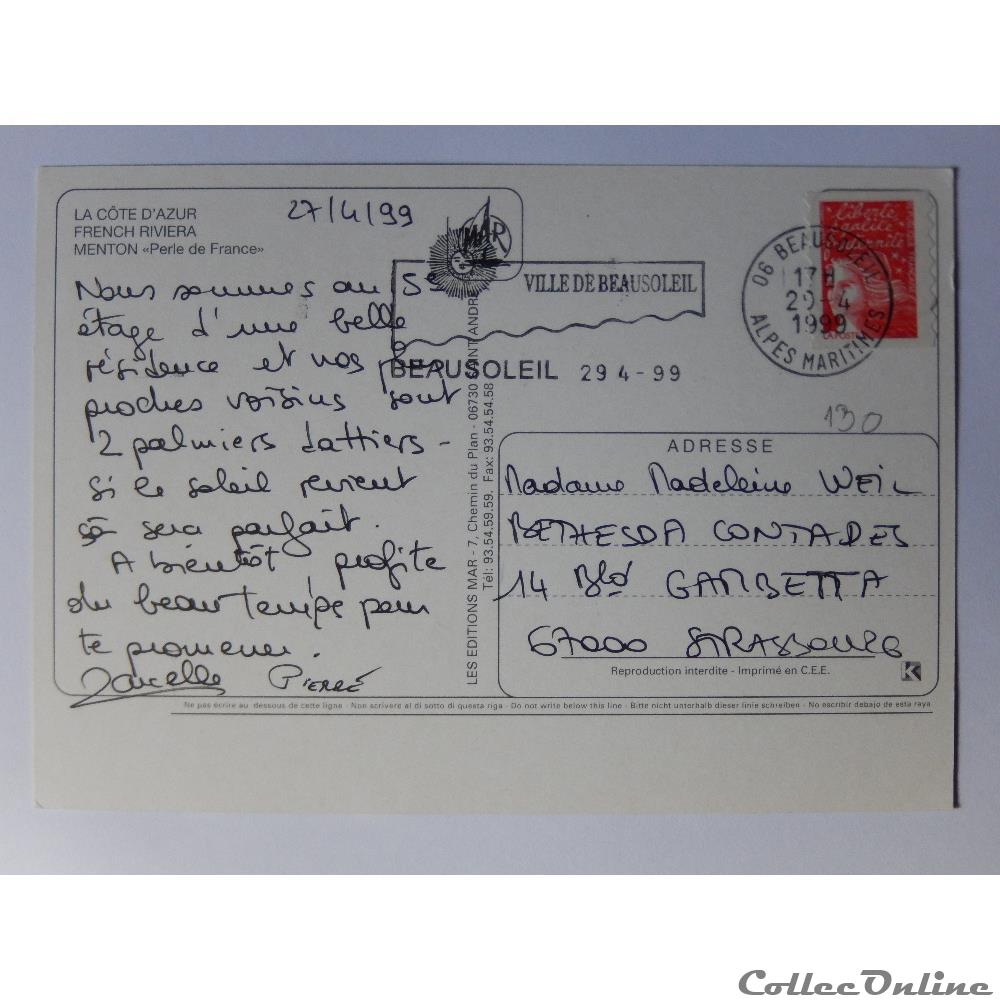 LA CÔTE D'AZUR
FRENCH RIVIERA
MENTON «Perle de France»
27/4/99
MAR
Nous sommes au 5e
étage d'une belle
résidence et nos plus
proches voisins sont
2 palmiers dattiers -
si le soleil revient
ça sera parfait.
A bientôt profite
du beau temps pour
te promener.
Pierre
VILLE DE BEAUSOLEIL
BEAUSOLEIL 29 4 - 99
06 BEAUSOLEIL
17H
29-4
1999
ALPES MARITIMES
liberté
égalité
fraternité
LA POSTE
130
LES EDITIONS MAR - 7, Chemin du Plan - 06730 SAINT ANDRÉ
Tél: 93.54.59.59. Fax: 93.54.54.58
ADRESSE
Madame Madeleine WEIL
BETHESDA CONTADES
14 Bld GAMBETTA
67000 STRASBOURG
Reproduction interdite - Imprimé en C.E.E.
K
Ne pas écrire au dessous de cette ligne - Non scrivere al di sotto di questa riga - Do not write below this line - Bitte nicht unterhalb dieser linie schreiben - No escribir debajo de esta raya
CollecOnline